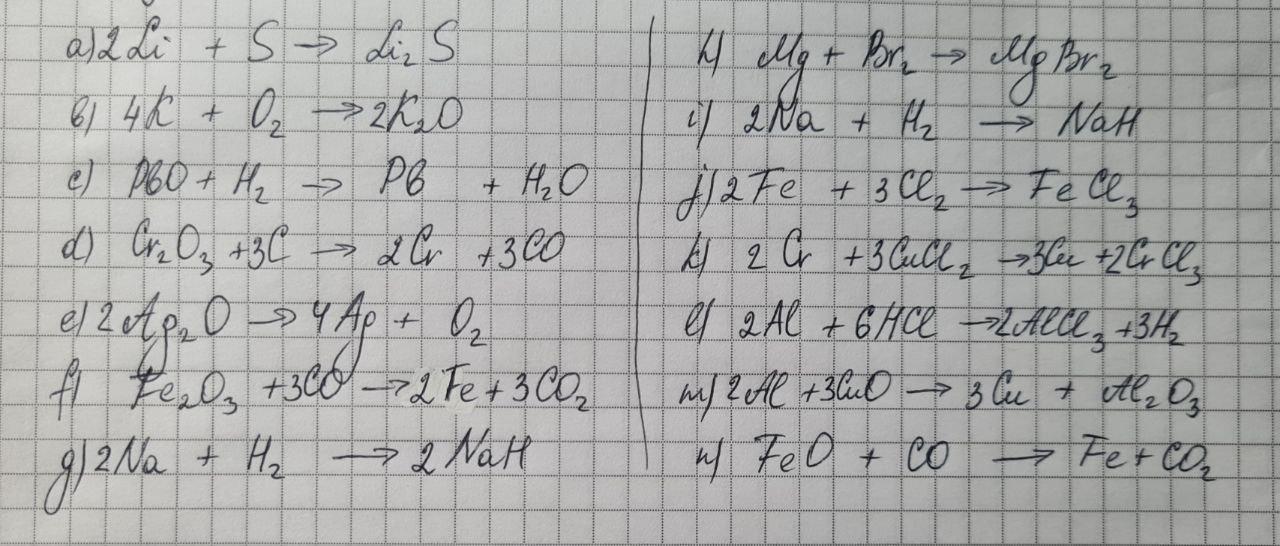 a) 2Li + S → Li₂S
b) 4K + O₂ → 2K₂O
c) PbO + H₂ → Pb + H₂O
d) Cr₂O₃ + 3C → 2Cr + 3CO
e) 2Ag₂O → 4Ag + O₂
f) Fe₂O₃ + 3CO → 2Fe + 3CO₂
g) 2Na + H₂ → 2NaH
h) Mg + Br₂ → MgBr₂
i) 2Na + H₂ → NaH
j) 2Fe + 3Cl₂ → FeCl₃
k) 2Cr + 3CuCl₂ → 3Cu + 2CrCl₃
l) 2Al + 6HCl → 2AlCl₃ + 3H₂
m) 2Al + 3CuO → 3Cu + Al₂O₃
n) FeO + CO → Fe + CO₂